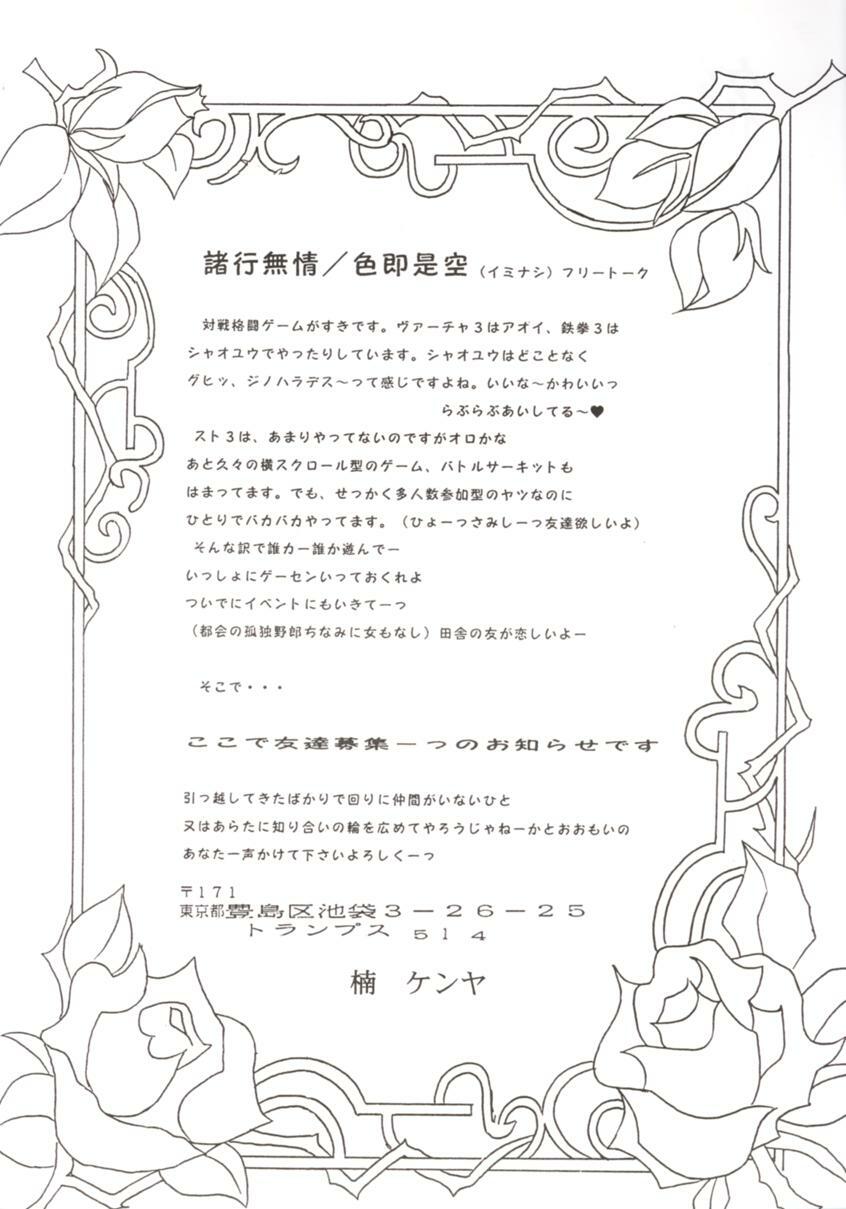 諸行無情／色即是空（イミナシ）フリートーク
対戦格闘ゲームがすきです。ヴァーチャ３はアオイ、鉄拳３は
シャオユウでやったりしています。シャオユウはどことなく
グヒッ、ジノハラデス〜って感じですよね。いいな〜かわいいっ
らぶらぶあいしてる〜♥
スト３は、あまりやってないのですがオロかな
あと久々の横スクロール型のゲーム、バトルサーキットも
はまってます。でも、せっかく多人数参加型のヤツなのに
ひとりでバカバカやってます。（ひょーっさみしーっ友達欲しいよ）
そんな訳で誰カー誰か遊んでー
いっしょにゲーセンいっておくれよ
ついでにイベントにもいきてーっ
（都会の孤独野郎ちなみに女もなし）田舎の友が恋しいよー
そこで・・・
ここで友達募集ーっのお知らせです
引っ越してきたばかりで回りに仲間がいないひと
又はあらたに知り合いの輪を広めてやろうじゃねーかとおおもいの
あなた一声かけて下さいよろしくーっ
〒１７１
東京都豊島区池袋３－２６－２５
トランプス ５１４
楠　ケンヤ